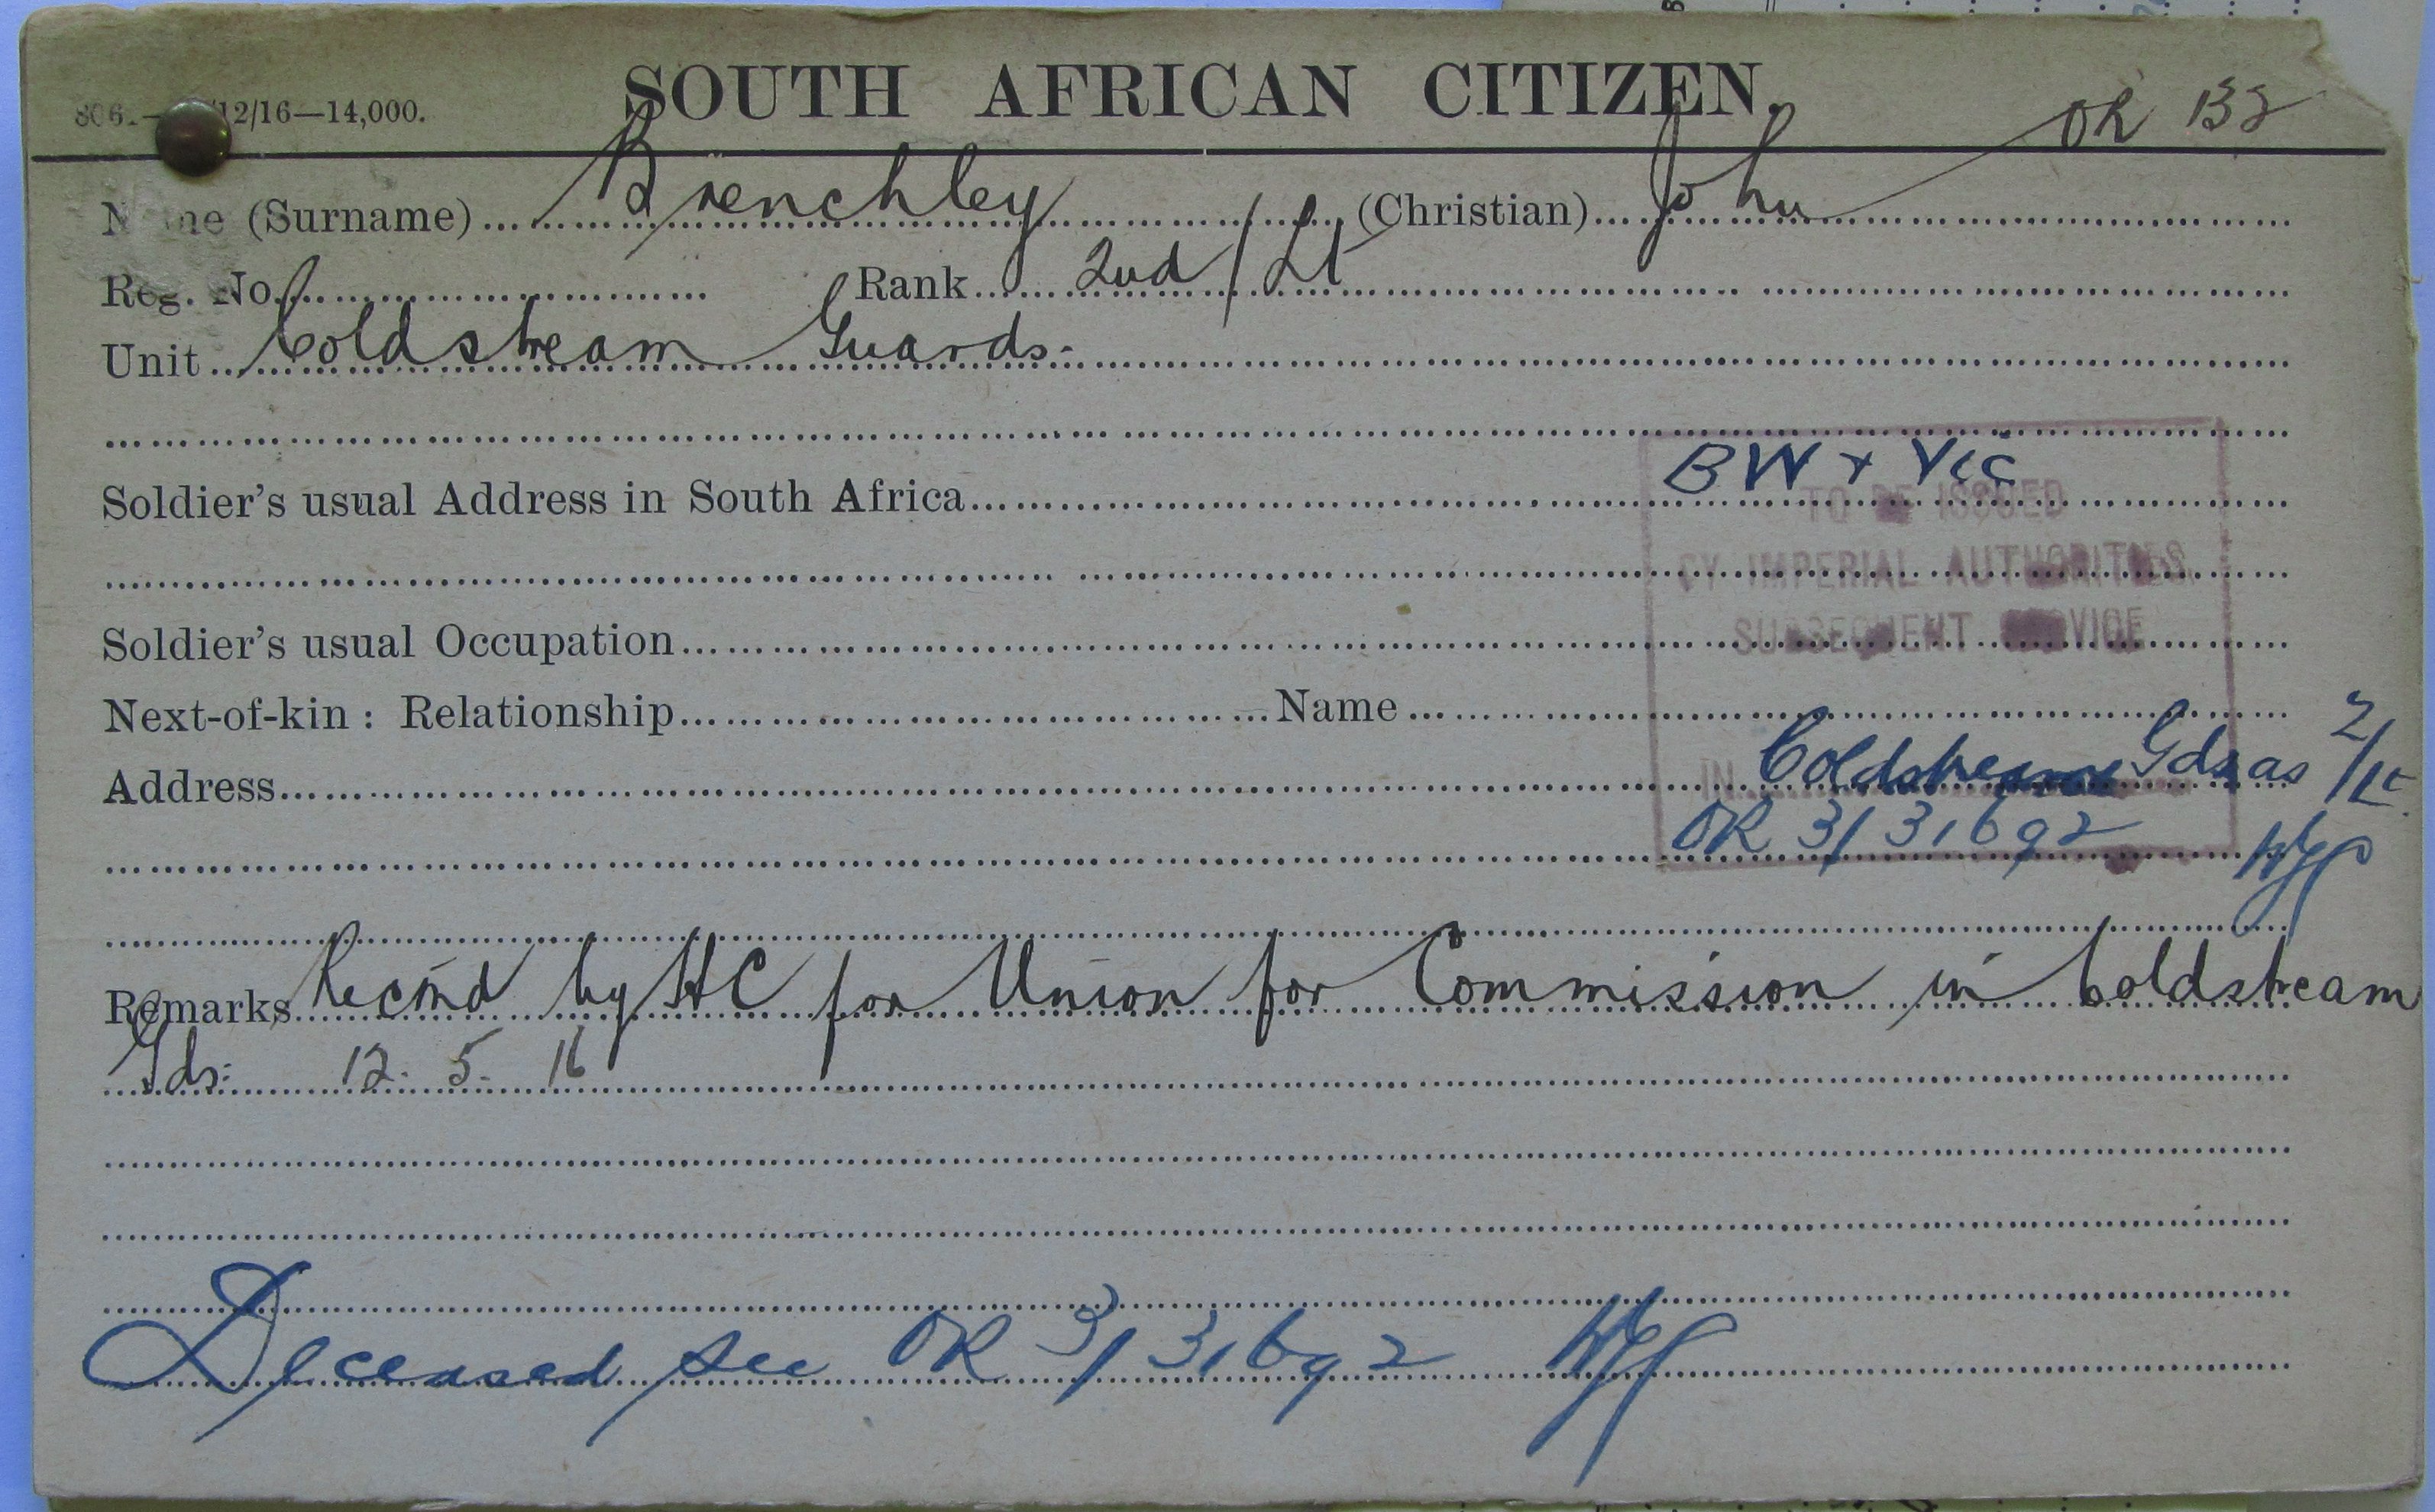 SOUTH AFRICAN CITIZEN.
806.— /12/16—14,000.
OR B2
Name (Surname) Brenchley (Christian) John
Reg. No. Rank 2nd / Lt
Unit Coldstream Guards.
BW + Vic
Soldier's usual Address in South Africa
TO BE ISSUED
BY IMPERIAL AUTHORITIES
Soldier's usual Occupation
SUBSEQUENT SERVICE
Next-of-kin : Relationship Name
Address
IN Coldstream Gds as 2/Lt
OR 3/31692
Remarks Recmd by HC for Union for Commission in Coldstream
Gds: 12. 5. 16
Deceased see OR 3/31692